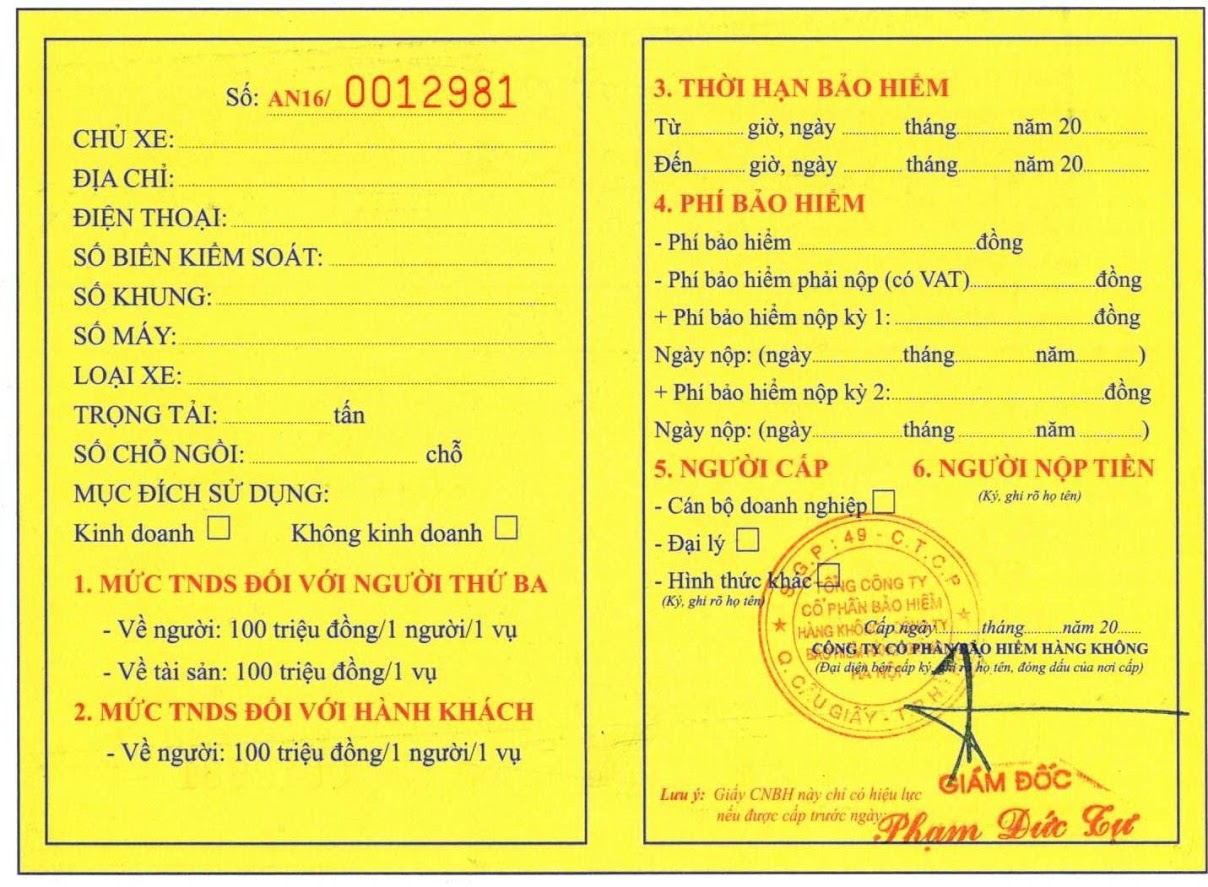 Số: AN16/ 0012981
CHỦ XE:
ĐỊA CHỈ:
ĐIỆN THOẠI:
SỐ BIỂN KIỂM SOÁT:
SỐ KHUNG:
SỐ MÁY:
LOẠI XE:
TRỌNG TẢI: tấn
SỐ CHỖ NGỒI: chỗ
MỤC ĐÍCH SỬ DỤNG:
Kinh doanh Không kinh doanh
1. MỨC TNDS ĐỐI VỚI NGƯỜI THỨ BA
- Về người: 100 triệu đồng/1 người/1 vụ
- Về tài sản: 100 triệu đồng/1 vụ
2. MỨC TNDS ĐỐI VỚI HÀNH KHÁCH
- Về người: 100 triệu đồng/1 người/1 vụ
3. THỜI HẠN BẢO HIỂM
Từ giờ, ngày tháng năm 20
Đến giờ, ngày tháng năm 20
4. PHÍ BẢO HIỂM
- Phí bảo hiểm đồng
- Phí bảo hiểm phải nộp (có VAT) đồng
+ Phí bảo hiểm nộp kỳ 1: đồng
Ngày nộp: (ngày tháng năm )
+ Phí bảo hiểm nộp kỳ 2: đồng
Ngày nộp: (ngày tháng năm )
5. NGƯỜI CẤP 6. NGƯỜI NỘP TIỀN
(Ký, ghi rõ họ tên)
- Cán bộ doanh nghiệp
- Đại lý
- Hình thức khác
(Ký, ghi rõ họ tên)
Cấp ngày tháng năm 20
CÔNG TY CỔ PHẦN BẢO HIỂM HÀNG KHÔNG
(Đại diện bên cấp ký, ghi rõ họ tên, đóng dấu của nơi cấp)
49 - C.T.C.P
TỔNG CÔNG TY
CỔ PHẦN BẢO HIỂM
HÀNG KHÔNG
HÀ NỘI
Q. CẦU GIẤY
GIÁM ĐỐC
Phạm Đức Tự
Lưu ý: Giấy CNBH này chỉ có hiệu lực
nếu được cấp trước ngày: